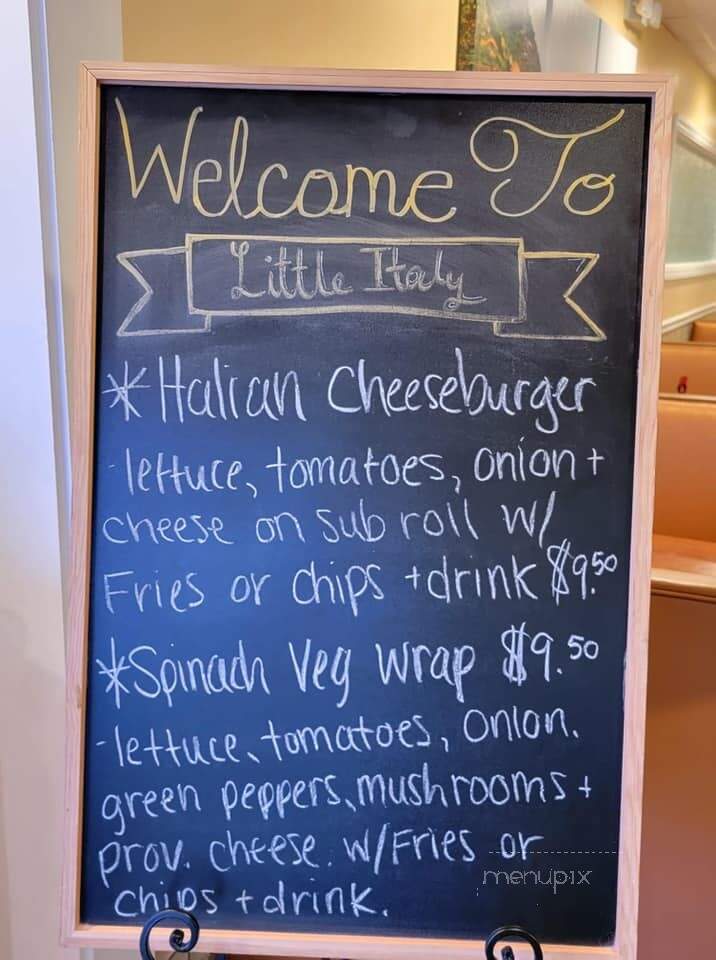 Welcome To
Little Italy
* Italian Cheeseburger
- lettuce, tomatoes, onion +
cheese on sub roll w/
Fries or chips + drink $9.50
* Spinach Veg wrap $9.50
- lettuce, tomatoes, onion.
green peppers, mushrooms +
prov. cheese. w/Fries or
chips + drink.
menupix